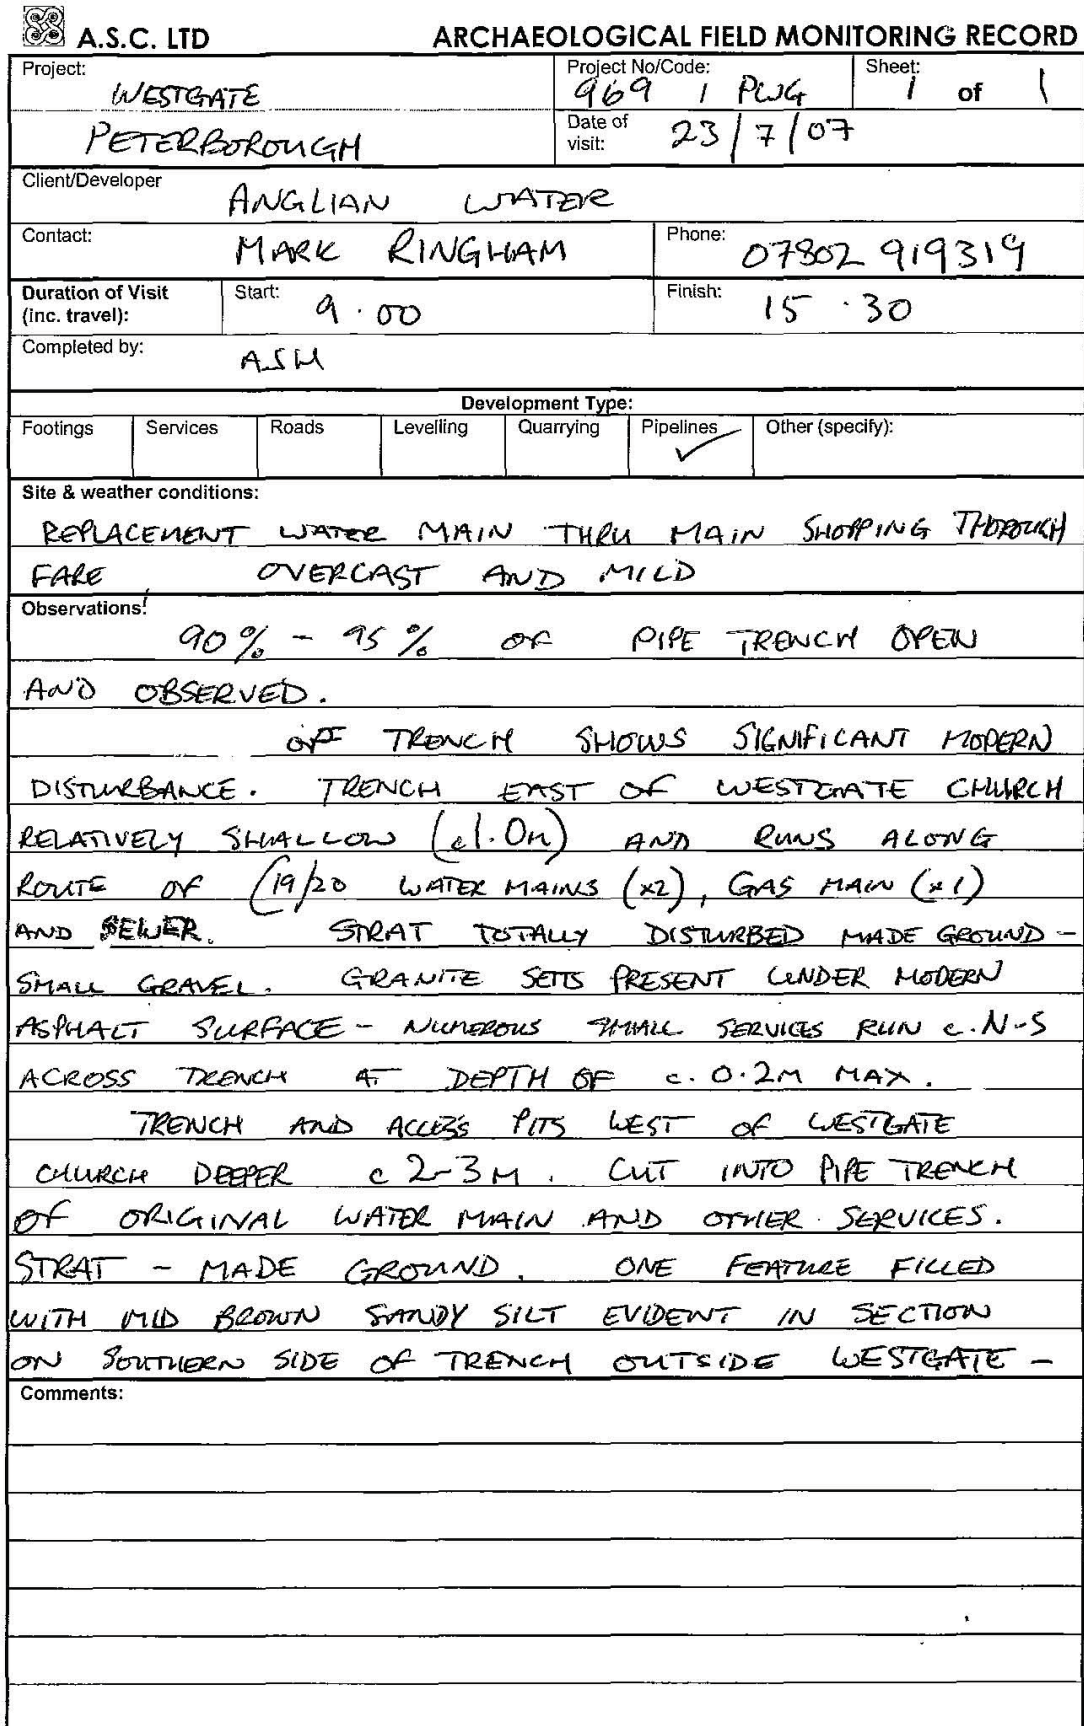 A.S.C. LTD ARCHAEOLOGICAL FIELD MONITORING RECORD
Project: WESTGATE
PETERBOROUGH
Project No/Code: 969 / PWG
Sheet: 1 of 1
Date of visit: 23/7/07
Client/Developer ANGLIAN WATER
Contact: MARK RINGHAM Phone: 07802 919319
Duration of Visit (inc. travel): Start: 9.00 Finish: 15.30
Completed by: ASH
Development Type:
Footings Services Roads Levelling Quarrying Pipelines ✓ Other (specify):
Site & weather conditions:
REPLACEMENT WATER MAIN THRU MAIN SHOPPING THOROUGH
FARE, OVERCAST AND MILD
Observations:
90% - 95% OF PIPE TRENCH OPEN
AND OBSERVED.
TRENCH SHOWS SIGNIFICANT MODERN
DISTURBANCE. TRENCH EAST OF WESTGATE CHURCH
RELATIVELY SHALLOW (c1.0m) AND RUNS ALONG
ROUTE OF C19/20 WATER MAINS (x2), GAS MAIN (x1)
AND SEWER. STRAT TOTALLY DISTURBED MADE GROUND -
SMALL GRAVEL. GRANITE SETTS PRESENT UNDER MODERN
ASPHALT SURFACE - NUMEROUS SMALL SERVICES RUN c.N-S
ACROSS TRENCH AT DEPTH OF c. 0.2M MAX.
TRENCH AND ACCESS PITS WEST OF WESTGATE
CHURCH DEEPER c 2-3M. CUT INTO PIPE TRENCH
OF ORIGINAL WATER MAIN AND OTHER SERVICES.
STRAT - MADE GROUND. ONE FEATURE FILLED
WITH MID BROWN SANDY SILT EVIDENT IN SECTION
ON SOUTHERN SIDE OF TRENCH OUTSIDE WESTGATE -
Comments: